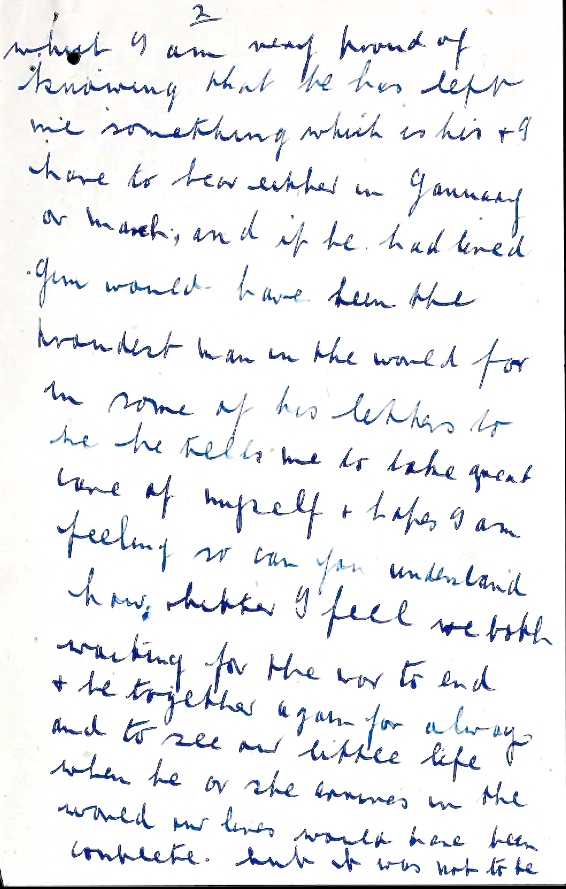 2
which I am very proud of
knowing that he has left
me something which is his + I
have to bear either in January
or March, and if he had lived
Jim would have been the
proudest man in the world for
in some of his letters to
me he tells me to take great
care of myself + hopes I am
feeling so can you understand
how, bitter I feel we both
waiting for the war to end
+ be together again for always
and to see our little life
when he or she arrives in the
world our lives would have been
complete. but it was not to be